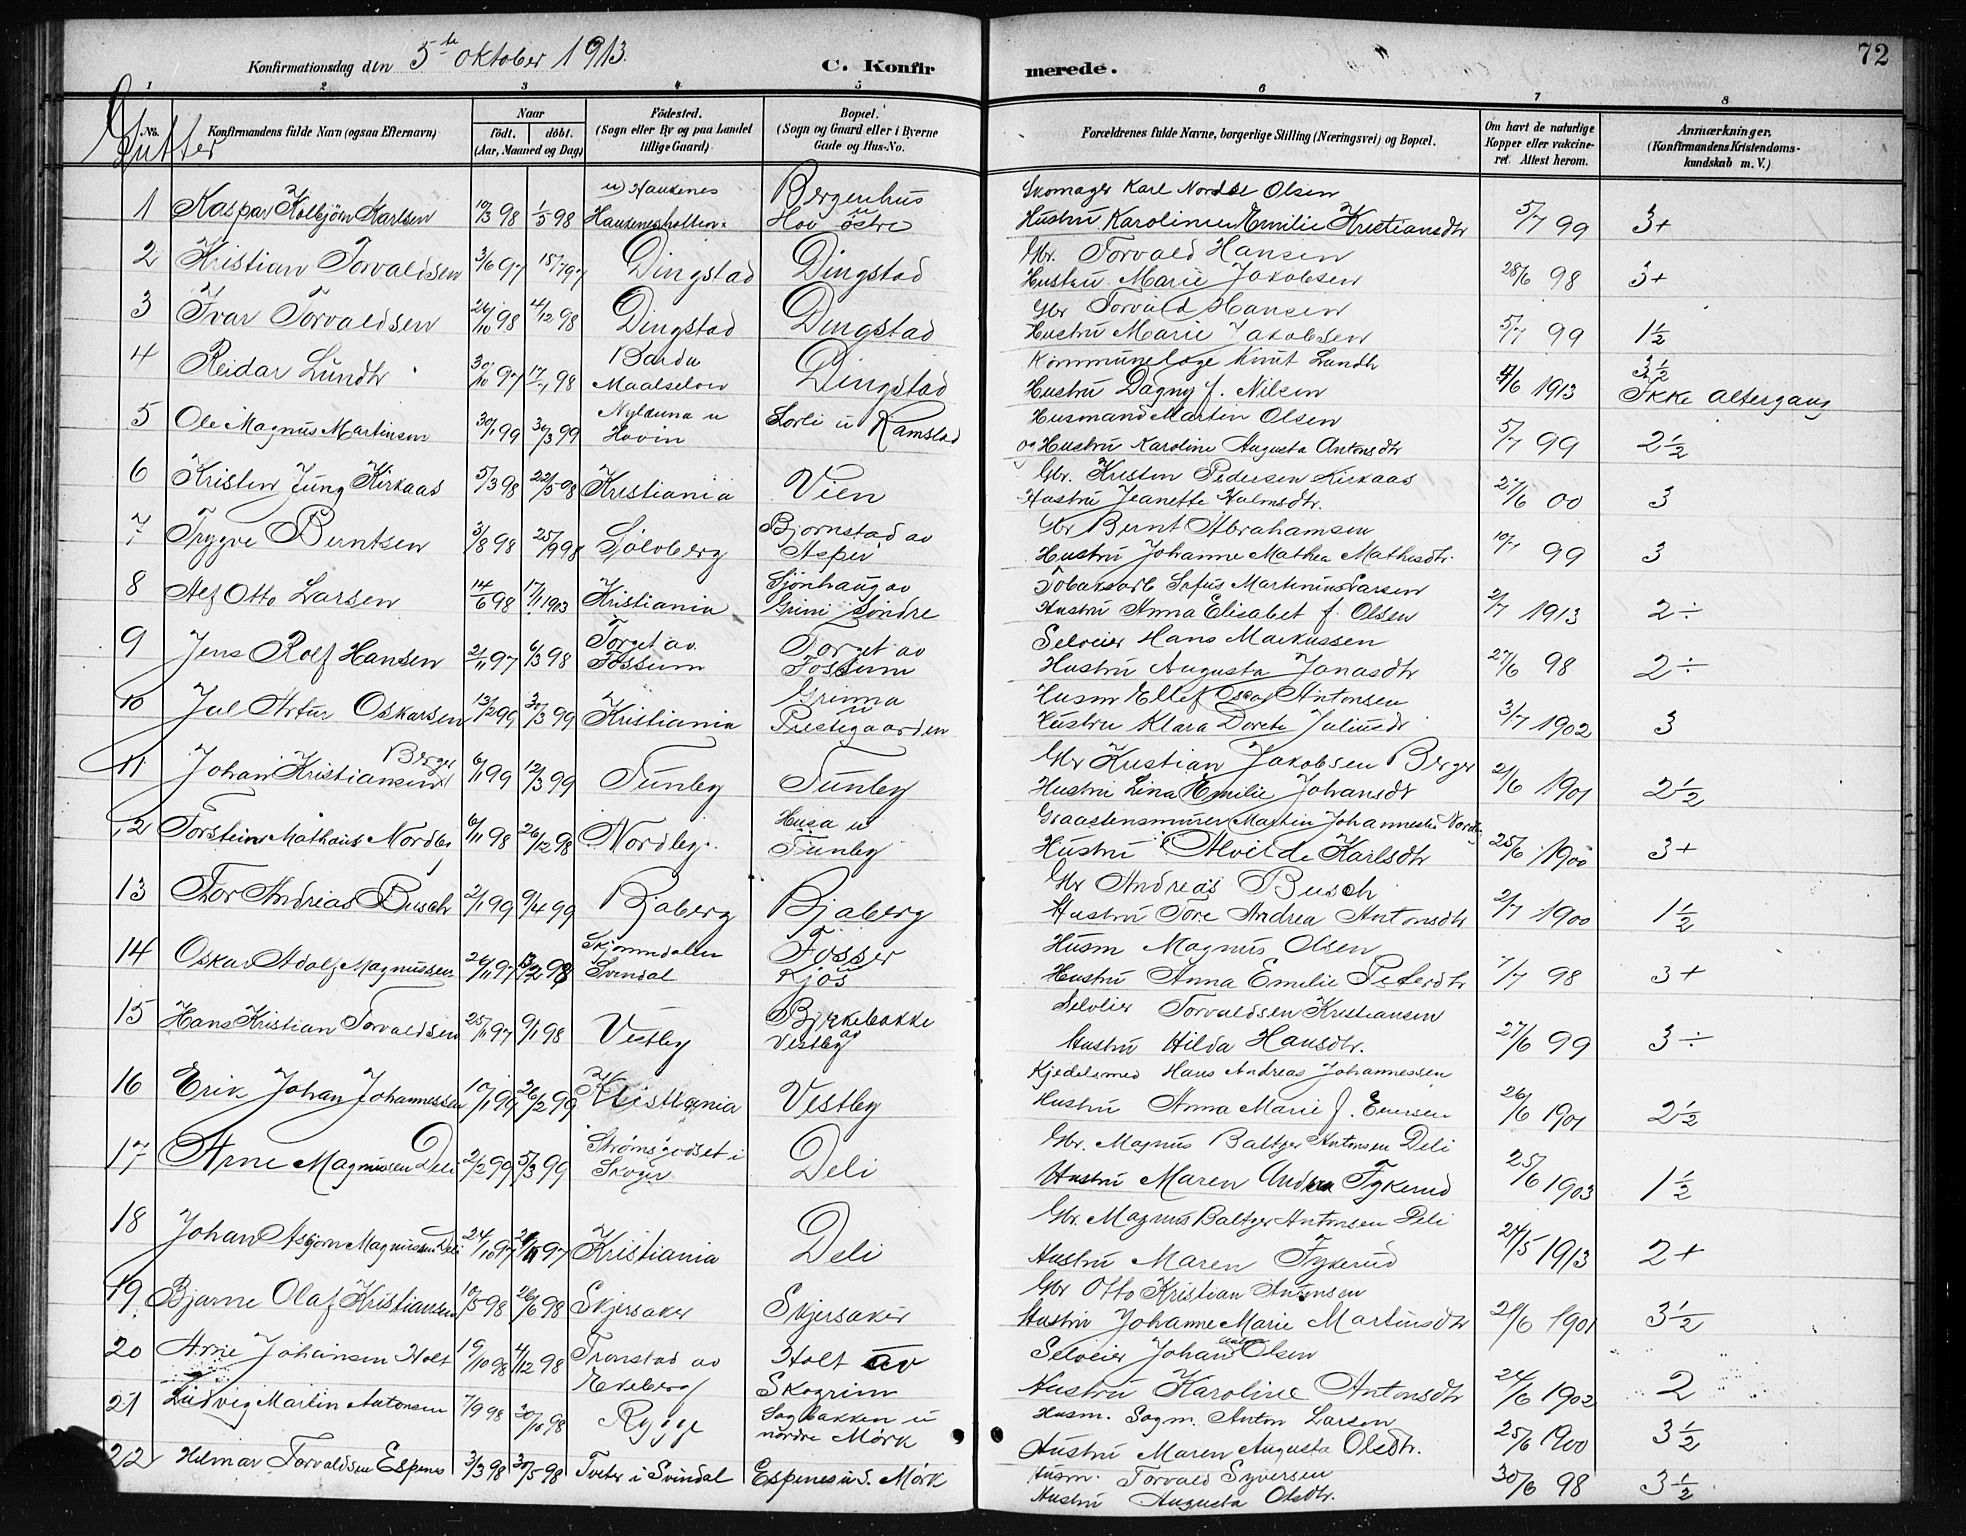 Konfirmationsdag den 5te oktober 1913. C. Konfirmerede. 72
1 2 3 4. 5 6 7 8
Gutter
No. Konfirmandens fulde Navn (ogsaa Efternavn) Naar födt. döbt. (Aar, Maaned og Dag) Födested. (Sogn eller By og paa Landet tillige Gaard). Bopæl. (Sogn og Gaard eller i Byerne Gade og Hus-No. Forældrenes fulde Navne, borgerlige Stilling (Næringsvei) og Bopæl. Om havt de naturlige Kopper eller vakcineret. Attest herom. Anmærkninger. (Konfirmandens Kristendomskundskab m. V.)
1 Kaspar Kolbjörn Karlsen 10/3 98 1/5 98 Bergenhus u Hov östre Skomager Karl Olsen
Hustru Karoline Emilie Kristiansdtr 5/7 99 3+
2 Kristian Torvaldsen 3/6 97 15/7 97 Dingstad Dingstad Gbr. Torvald Hansen
Hustru Marie Jakobsen 28/6 98 3+
3 Ivar Torvaldsen 26/10 98 4/12 98 Dingstad Dingstad Gbr Torvald Hansen
Hustru Marie Jakobsen 5/7 99 1½
4 Reidar Lundh 30/10 97 17/1 98 Bardu Maalselven Dingstad Kommunelæge Knut Lundh
Hustru Dagny f. Nilsen 4/6 1913 3½ Ikke altergang
5 Ole Magnus Martinsen 30/1 99 30/3 99 u Hovin Sorli u Ramstad Husmand Martin Olsen
og Hustru Karoline Augusta Antonsdtr 5/7 99 2½
6 Kristen Jung Kirkaas 5/3 98 22/5 98 Kristiania Vien Gbr. Kristen Pedersen Kirkaas
Hustru Jeanette Holmsdtr. 27/6 00 3
7 Trygve Berntsen 3/8 98 25/9 98 Sjölvberg Bjornstad av Asper Gbr Bernt Abrahamsen
Hustru Johanne Mathea Mathisdtr. 10/7 99 3
8 Alf Otto Larsen 14/6 98 17/11 1903 Kristiania Sjönhaug av Grini söndre Martinius Larsen
Hustru Anna Elisabet f. Olsen 2/7 1913 2÷
9 Jens Rolf Hansen 21/11 97 6/3 98 Torget av Fossum Torget av Fossum Selveier Hans Markussen
Hustru Augusta Jonasdtr 27/6 98 2÷
10 Jul Artur Oskarsen 13/2 99 30/3 99 Kristiania Grinna u Prestegaarden Husm Ellef Oscar Antonsen
Hustru Klara Dorete Juliusdr 3/7 1902 3
11 Johan Kristiansen Berger 6/1 99 12/3 99 Tunby Tunby Gbr Kristian Jakobsen Berger
Hustru Lina Emilie Johansdr 21/6 1901 2½
12 Torstein Mathæus Nordby 6/11 98 26/12 98 Nordby. Husa u Tunby Graastensmurer Martin Johannesen Nordby
Hustru Alvilde Karlsdtr 25/6 1900 3+
13 Tor Andreas Busch 2/1 99 9/4 99 Bjaberg Bjaberg Gbr Andreas Busch
Hustru Tore Andrea Antonsdtr 2/7 1900 1½
14 Oskar Adolf Magnussen 26/11 97 13/2 98 Skjönndalen Svendal Fosser u Kjos Husm Magnus Olsen
Hustru Anna Emilie Petersdtr 7/7 98 3+
15 Hans Kristian Torvaldsen 25/11 97 9/1 98 Vestby Bjerkebakke av Vestby Selveier Torvaldsen Kristiansen
Hustru Hilda Hansdtr. 27/6 99 3÷
16 Erik Johan Johannessen 10/1 99 26/2 99 Kristiania Vestby Kjedelsmed Hans Andreas Johannessen
Hustru Anna Marie f. Eversen 26/6 1901 2½
17 Arne Magnussen Deli 2/2 99 5/3 99 Strömsgodset i Skoger Deli Gbr. Magnus Baltzer Antonsen Deli
Hustru Maren Andrea Fykerud 25/6 1903 1½
18 Johan Asbjorn Magnussen Deli 24/10 97 21/11 97 Kristiania Deli Gbr. Magnus Baltzer Antonsen Deli
Hustru Maren Fykerud 27/5 1913 2+
19 Bjarne Olaf Kristiansen 10/5 98 26/6 98 Skjersaker Skjersaker Gbr Otto Kristian Antonsen
Hustru Johanne Marie Martinsdtr 21/6 1901 3½
20 Arne Johansen Holt 19/10 98 4/12 98 Tronstad av Ekeberg Holt av Skogrim Selveier Johan Anton Olsen
Hustru Karoline Antonsdtr 24/6 1902 2
21 Ludvig Martin Antonsen 7/9 98 30/10 98 Rygge Sagbakken u nordre Mörk Husm. Sagm. Anton Larsen
Hustru Maren Augusta Olsdtr. 25/6 1900 3½
22 Hilmar Torvaldsen Espenes 3/3 98 30/5 98 Tveter i Svindal Espenes u S. Mörk Husm. Torvald Syversen
Hustru Augusta Olsdtr. 30/6 98 3½